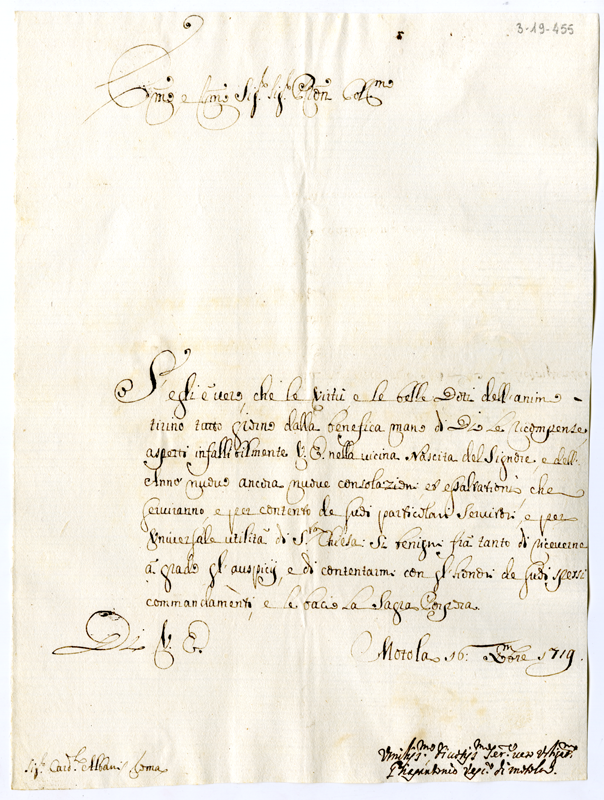 3-19-455
Em̃o e Rm̃o Sig.r Sig.r Pron Coll.mo
S'egli è vero che le virtù e le belle Doti dell'animo
tirino tutto giorno dalla benefica mano di Dio le ricompense,
aspetti infallibilmente V. E. nella vicina Nascita del Signore, e dell'
Anno nuovo ancora nuove consolazioni et esaltationi che
serviranno e per contento de suoi particolari servitori, e per
Universale utilità di S.ta Chiesa. Si benigni frà tanto di riceverne
à grado gl'auspicij, e di contentarmi con gl'honori de suoi spessi
commandamenti, e le bacio la Sagra Porpora.
Di V. E.
Motola 16. Xm̃bre 1719.
Sig.r Card.le Albani Roma
Umiliss.mo Divotiss.mo Ser.re vero
Vesc.o di Motola